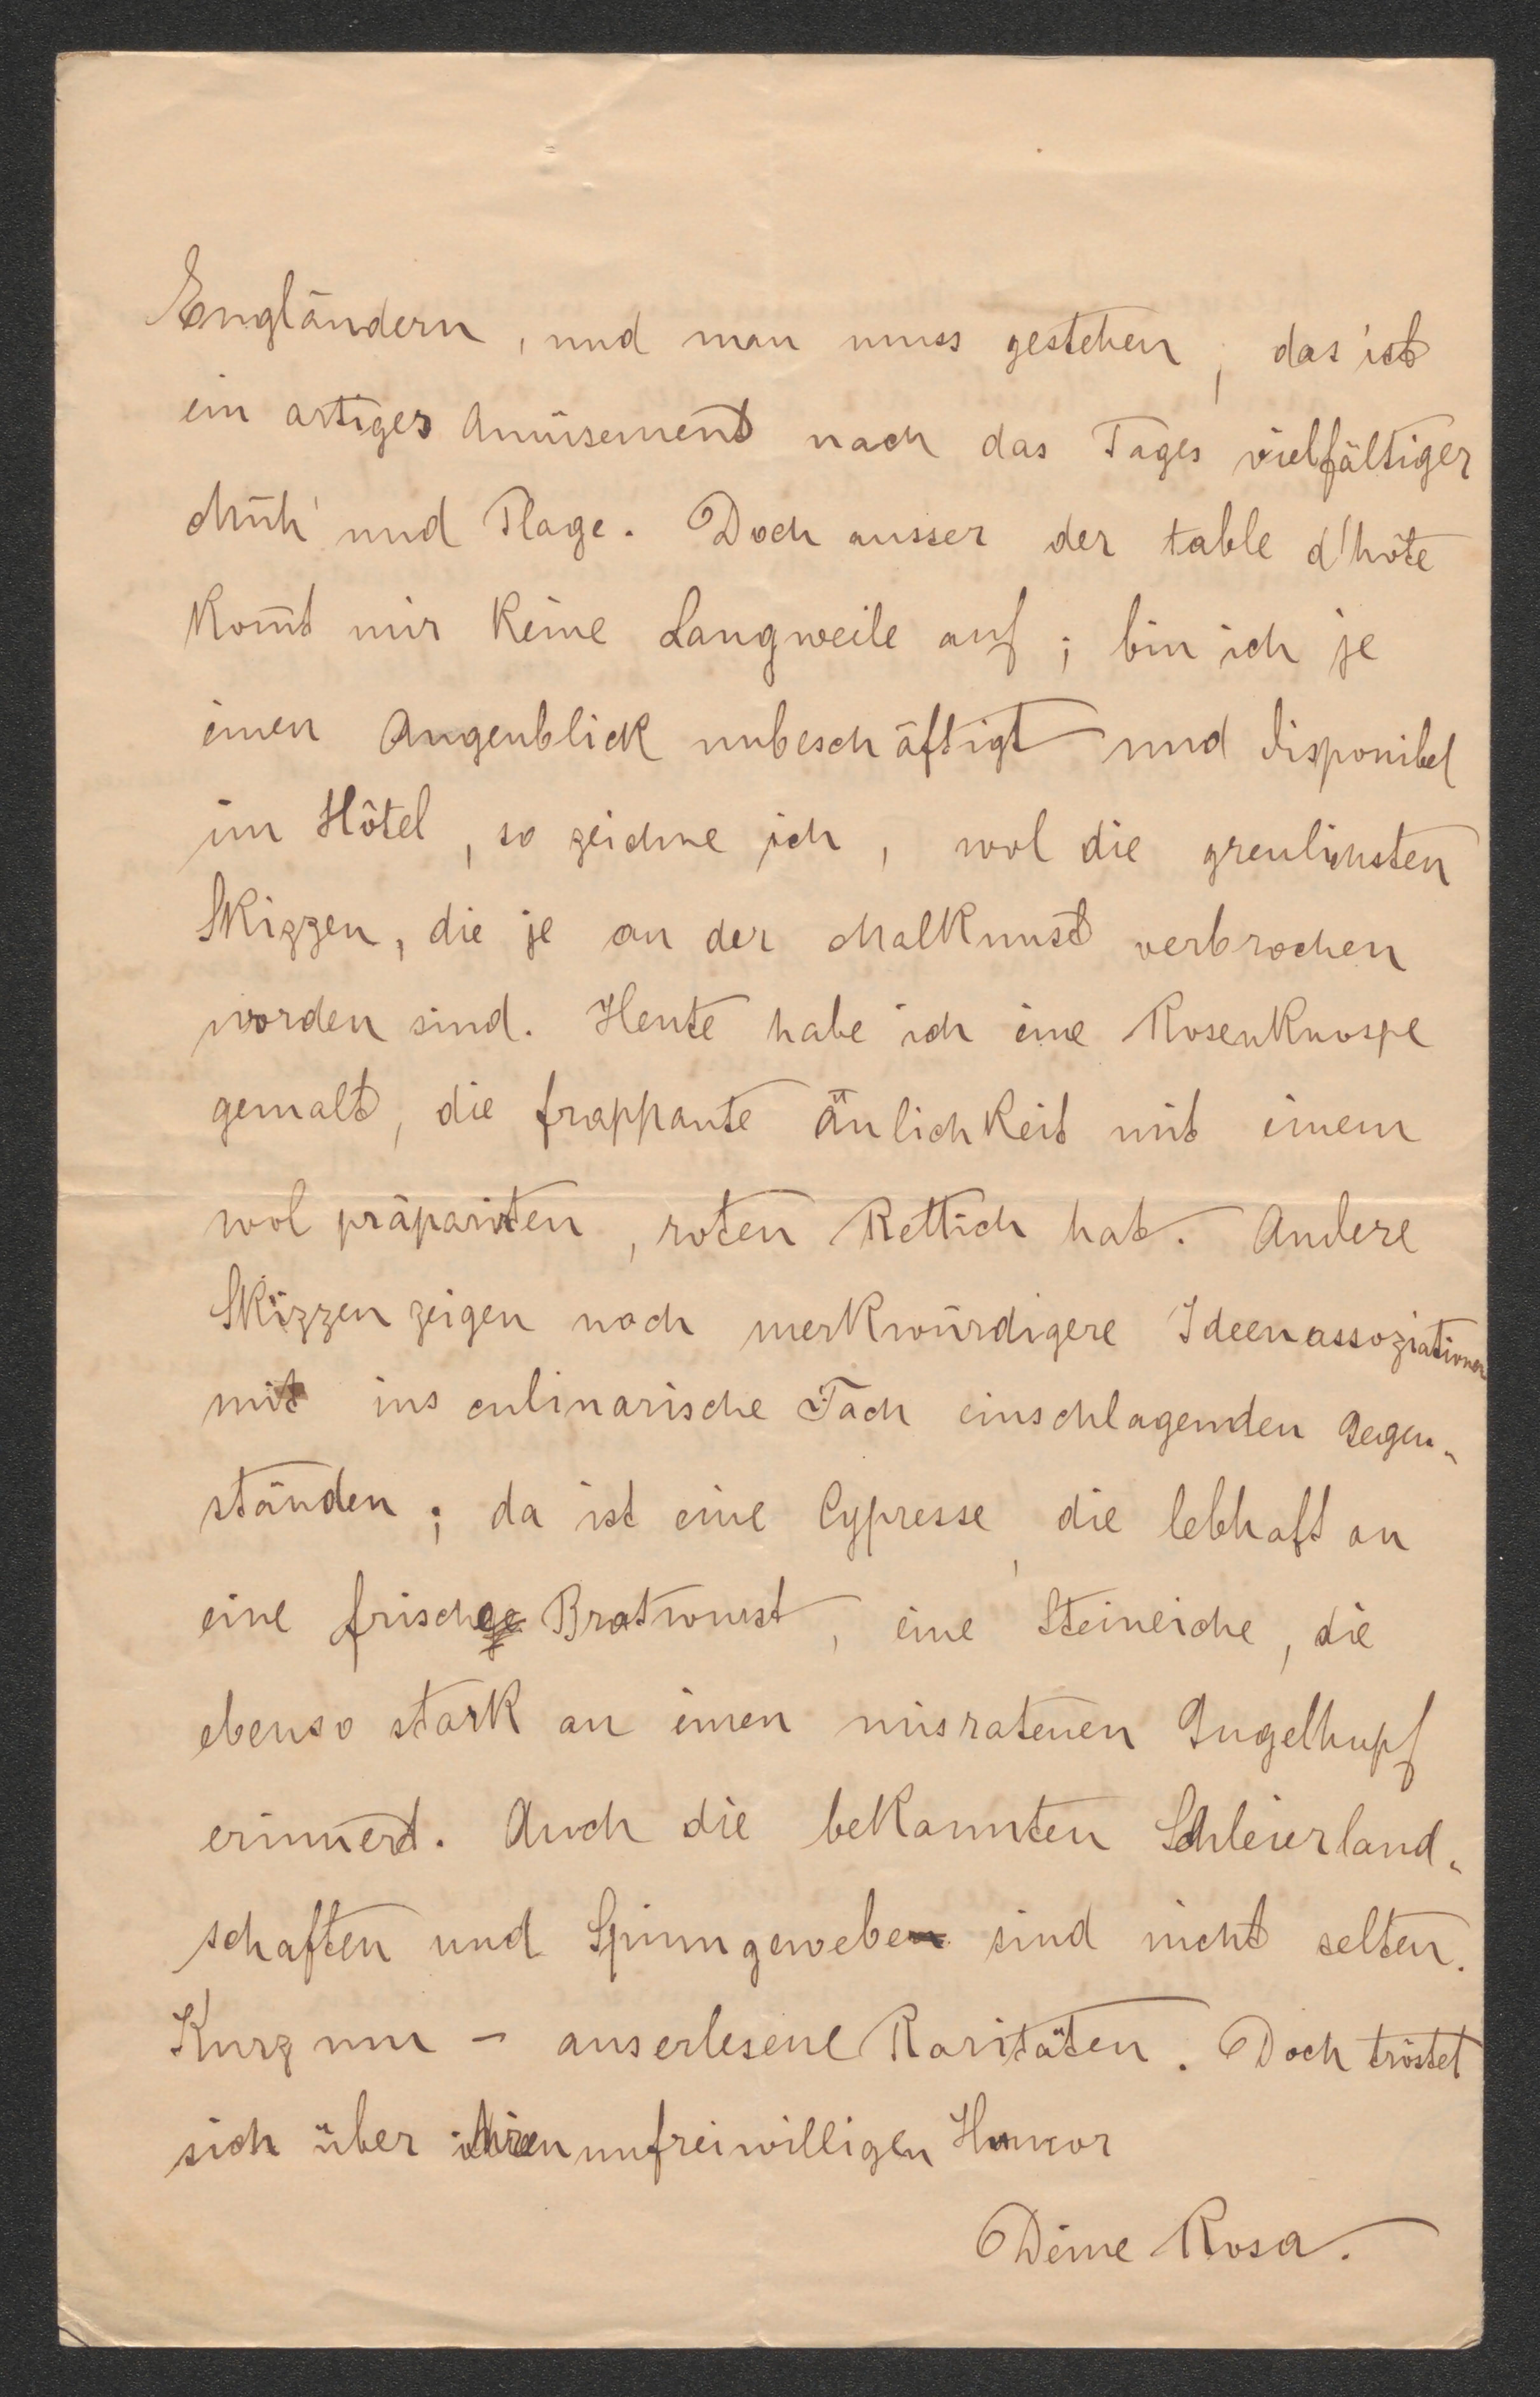 Engländern, und man muss gestehen, das ist
ein artiges Amüsement nach das Tages vielfältiger
Müh' und Plage. Doch ausser der table d'hôte
kom̄t mir keine Langweile auf; bin ich je
einen Augenblick unbeschäftigt und disponibel
im Hôtel, so zeichne ich, wol die greulichsten
Skizzen, die je an der Malkunst verbrochen
worden sind. Heute habe ich eine Rosenknospe
gemalt, die frappante Änlichkeit mit einem
wol präparirten, roten Rettich hat. Andere
Skizzen zeigen noch merkwürdigere Ideenassoziationen
mit ins culinarische Fach einschlagenden Gegen-
ständen; da ist eine Cypresse, die lebhaft an
eine frische Bratwurst, eine Steineiche, die
ebenso stark an einen misratenen Gugelhupf
erinnert. Auch die bekannten Schleierland-
schaften und Spinngewebe sind nicht selten.
Kurzum - auserlesene Raritäten. Doch tröstet
sich über ihren unfreiwilligen Humor
Deine Rosa.